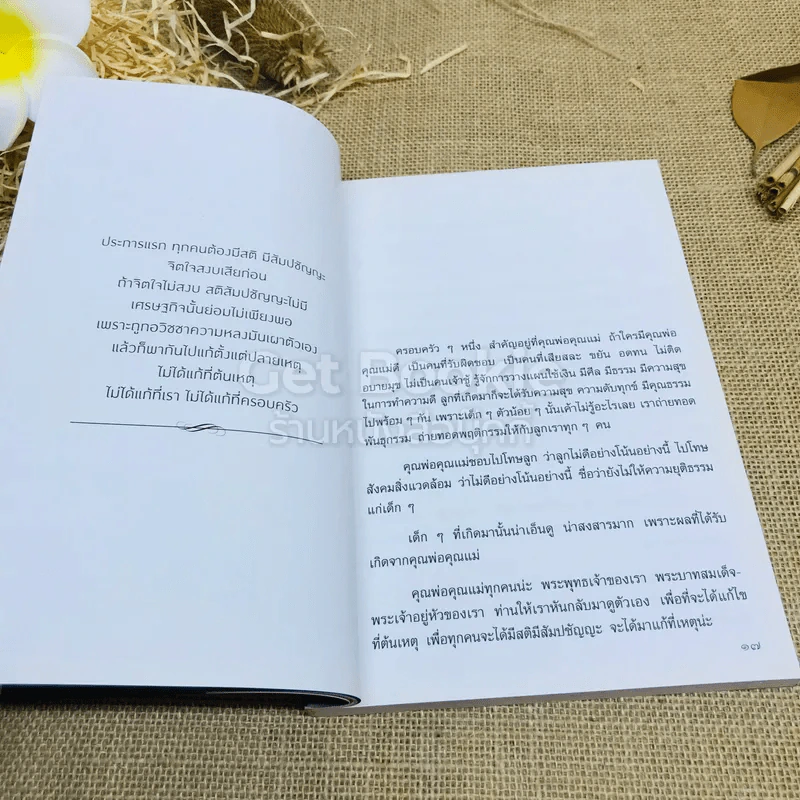 ประการแรก ทุกคนต้องมีสติ มีสัมปชัญญะ
จิตใจสงบเสียก่อน
ถ้าจิตใจไม่สงบ สติสัมปชัญญะไม่มี
เศรษฐกิจนั้นย่อมไม่เพียงพอ
เพราะถูกอวิชชาความหลงมันเผาตัวเอง
แล้วก็พากันไปแก้ตั้งแต่ปลายเหตุ
ไม่ได้แก้ที่ต้นเหตุ
ไม่ได้แก้ที่เรา ไม่ได้แก้ที่ครอบครัว
ครอบครัว ๆ หนึ่ง สำคัญอยู่ที่คุณพ่อคุณแม่ ถ้าใครมีคุณพ่อ
คุณแม่ดี เป็นคนที่รับผิดชอบ เป็นคนที่เสียสละ ขยัน อดทน ไม่ติด
อบายมุข ไม่เป็นคนเจ้าชู้ รู้จักการวางแผนใช้เงิน มีศีล มีธรรม มีความสุข
ในการทำความดี ลูกที่เกิดมาก็จะได้รับความสุข ความดับทุกข์ มีคุณธรรม
ไปพร้อม ๆ กัน เพราะเด็ก ๆ ตัวน้อย ๆ นั้นเค้าไม่รู้อะไรเลย เราถ่ายทอด
พันธุกรรม ถ่ายทอดพฤติกรรมให้กับลูกเราทุก ๆ คน
คุณพ่อคุณแม่ชอบไปโทษลูก ว่าลูกไม่ดีอย่างโน้นอย่างนี้ ไปโทษ
สังคมสิ่งแวดล้อม ว่าไม่ดีอย่างโน้นอย่างนี้ ชื่อว่ายังไม่ให้ความยุติธรรม
แก่เด็ก ๆ
เด็ก ๆ ที่เกิดมานั้นน่าเอ็นดู น่าสงสารมาก เพราะผลที่ได้รับ
เกิดจากคุณพ่อคุณแม่
คุณพ่อคุณแม่ทุกคนน่ะ พระพุทธเจ้าของเรา พระบาทสมเด็จ-
พระเจ้าอยู่หัวของเรา ท่านให้เราหันกลับมาดูตัวเอง เพื่อที่จะได้แก้ไข
ที่ต้นเหตุ เพื่อทุกคนจะได้มีสติมีสัมปชัญญะ จะได้มาแก้ที่เหตุน่ะ
๑๗
Get Bookie
ร้านหนังสือนุ๊กกี้